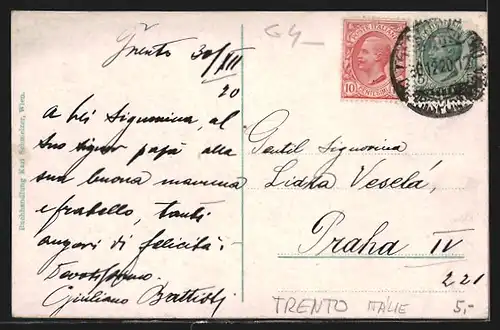 G4-
Trento 30/XII
20
A Lei Signorina, al
Suo signor papà alla
sua buona mamma
e fratello, tanti
auguri di felicità.
Devotissimo
Giuliano Battisti
POSTE ITALIANE
10 CENTESIMI
Gentil Signorina
Lidka Veselá,
Praha IV
221
TRENTO ITÁLIE 5,-
Buchhandlung Karl Schmelzer, Wien.